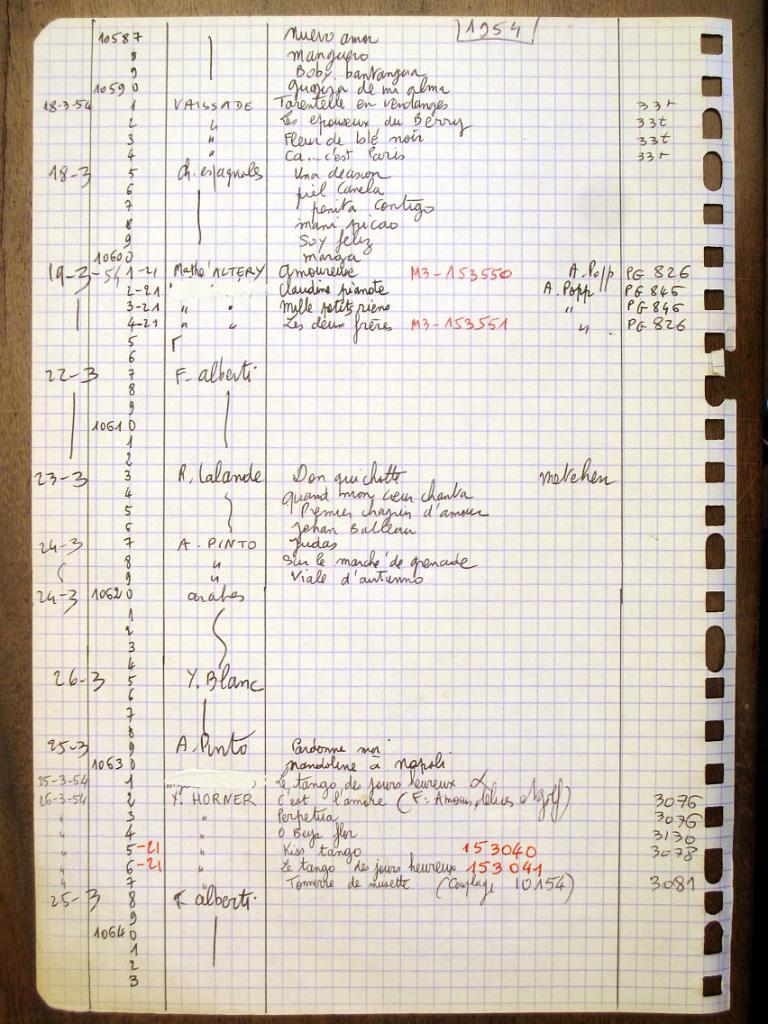 1954
10587 nuevo amor
8 manguero
9 Boby. bantangua
10590 guajira de mi alma
18-3-54 1 VAISSADE Tarentelle en vendanges 33t
2 " Les epouseux du Berry 33t
3 " Fleur de blé noir 33t
4 " Ca... c'est Paris 33t
18-3 5 Ch. espagnols Una
6 piel Canela
7 penita contigo
8 mani picao
9 Soy feliz
10600
19-3-54 1-21 Mathé ALTERY Amoureuse M3-153550 A. Popp PG 826
2-21 Claudine pianote A. Popp PG 845
3-21 " " Mille petits riens " PG 845
4-21 " " Les deux frères M3-153551 " PG 826
5
6
22-3 7 F. alberti
8
9
10610
1
2
23-3 3 R. Lalande Don quichotte metehen
4 quand mon cœur chanta
5 Premier chagrin d'amour
6 Jehan
24-3 7 A. PINTO Judas
8 " Sur le marché de grenade
9 " Viale d'autunno
24-3 10620 arabes
1
2
3
4
26-3 5 Y. Blanc
6
7
8
25-3 9 A. Pinto Pardonne moi
10630 mandoline a napoli
25-3-54 1 Le tango des jours heureux
26-3-54 2 Y. HORNER C'est l'amore (F: Amour, délices 3076
" 3 " Perpetua 3076
" 4 " O Beija flor 3130
" 5-21 " Kiss tango 153040 3078
" 6-21 " Le tango des jours heureux 153041
" 7 " Tonnerre de musette (Couplage 10154) 3081
25-3 8 F alberti
9
10640
1
2
3